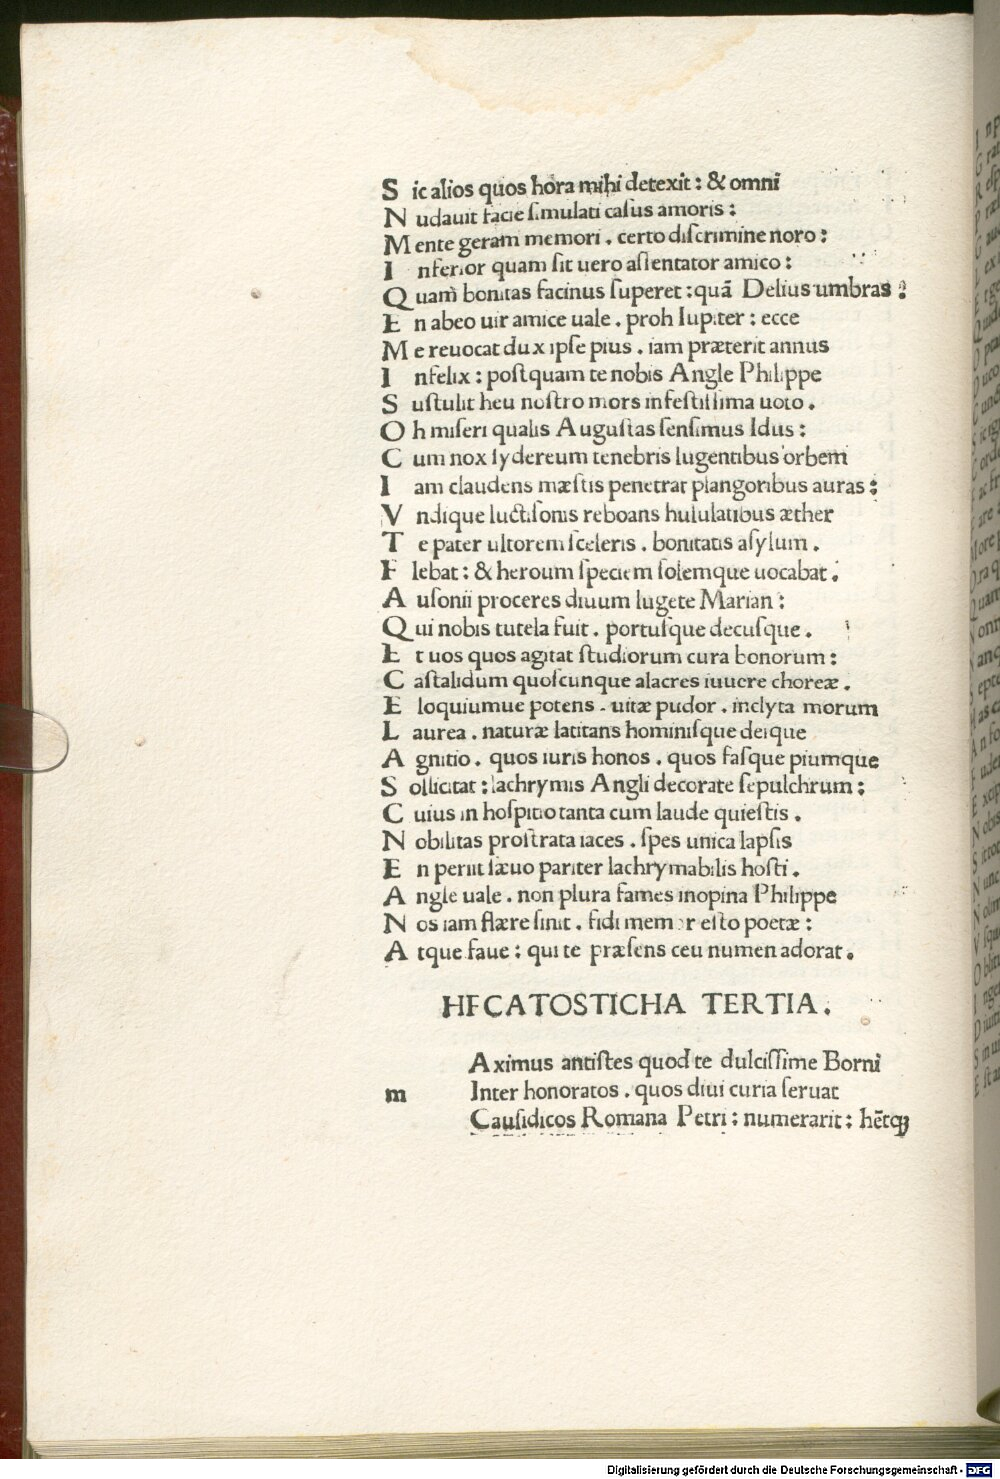 S ic alios quos hora mihi detexit : & omni
N udauit facie ſimulati caſus amoris :
M ente geram memori . certo diſcrimine noro :
I nferior quam ſit uero aſſentator amico :
Q uam bonitas facinus ſuperet : quã Delius umbras :
E n abeo uir amice uale . proh Iupiter : ecce
M e reuocat dux ipſe pius . iam præterit annus
I nfelix : poſtquam te nobis Angle Philippe
S uſtulit heu noſtro mors infeſtiſſima uoto .
O h miſeri qualis Auguſtas ſenſimus Idus :
C um nox ſydereum tenebris lugentibus orbem
I am claudens mæſtis penetrat plangoribus auras :
V ndique luctiſonis reboans hululatibus æther
T e pater ultorem ſceleris . bonitatis aſylum .
F lebat : & heroum ſpeciem ſolemque uocabat .
A uſonii proceres diuum lugete Marian :
Q ui nobis tutela fuit . portuſque decuſque .
E t uos quos agitat ſtudiorum cura bonorum :
C aſtalidum quoſcunque alacres iuuere choreæ .
E loquiumue potens . uitæ pudor . inclyta morum
L aurea . naturæ latitans hominiſque deique
A gnitio . quos iuris honos . quos faſque piumque
S ollicitat : lachrymis Angli decorate ſepulchrum :
C uius in hoſpitio tanta cum laude quieſtis .
N obilitas proſtrata iaces . ſpes unica lapſis
E n periit ſæuo pariter lachrymabilis hoſti .
A ngle uale . non plura fames inopina Philippe
N os iam flære ſinit . fidi memor eſto poetæ :
A tque faue : qui te præſens ceu numen adorat .
HECATOSTICHA TERTIA .
Aximus antiſtes quod te dulciſſime Borni
m Inter honoratos . quos diui curia ſeruat
Cauſidicos Romana Petri : numerarit : hẽtqꝫ
Digitalisierung gefördert durch die Deutsche Forschungsgemeinschaft - DFG